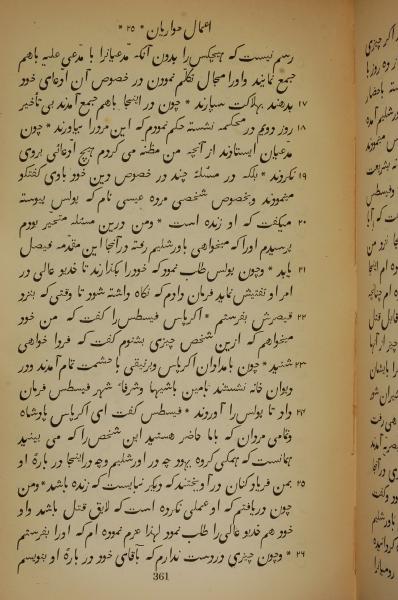 اعمال حواریان * ۲۵ *
رسم نیست که هیچکس را بدون آنکه مدعیانرا با مدعی علیه باهم
جمع نمایند و اورا مجال تکلم نمودن در خصوص آن ادعای خود
۱۷ بدهند بهلاکت سپارند * چون در اینجا باهم جمع آمدند بی تأخیر
۱۸ روز دویم در محکمه نشسته حکم نمودم که این مرد را بیاورند * چون
مدعیان ایستادند از آنچه من مظنه می کردم هیچ ادعائی بروی
۱۹ نکردند * بلکه در مسئلهٔ چند در خصوص دین خود باوی گفتگو
مینمودند و بخصوص شخصی مرده عیسی نام که پولس پیوسته
۲۰ میگفت که او زنده است * ومن درین مسئله متحیر بودم
پرسیدم اورا که میخواهی باورشلیم رفته در آنجا این مقدمه فیصل
۲۱ یابد * وچون پولس طلب نمود که خودرا بگذارند تا خدیو عالی در
امر او تفتیش نماید فرمان دادم که نگاه داشته شود تا وقتی که بنزد
۲۲ قیصرش بفرستم * اگرپاس فیسطس را گفت که من خود
میخواهم که ازین شخص چیزی بشنوم گفت که فردا خواهی
۲۳ شنید * چون بامدادان اگرپاس وبرنیقی با حشمت تمام آمدند ودر
دیوان خانه نشستند بامین باشیها وشرفاء شهر فیسطس فرمان
۲۴ داد تا پولس را آوردند * فیسطس گفت ای اگرپاس پادشاه
وتمامی مردان که باما حاضر هستید این شخص را که می بینید
همانست که همگی گروه یهود چه در اورشلیم وچه در اینجا در بارهٔ او
۲۵ بمن فریاد کنان در آویختند که دیگر نبایست که زنده باشد * ومن
چون دریافتم که او عملی نکرده است که لایق قتل باشد واو
خود هم خدیو عالی را طلب نمود لهذا عزم نموده ام که اورا بفرستم
۲۶ * وچون چیزی در دست ندارم که بآقای خود در بارهٔ او بنویسم
361